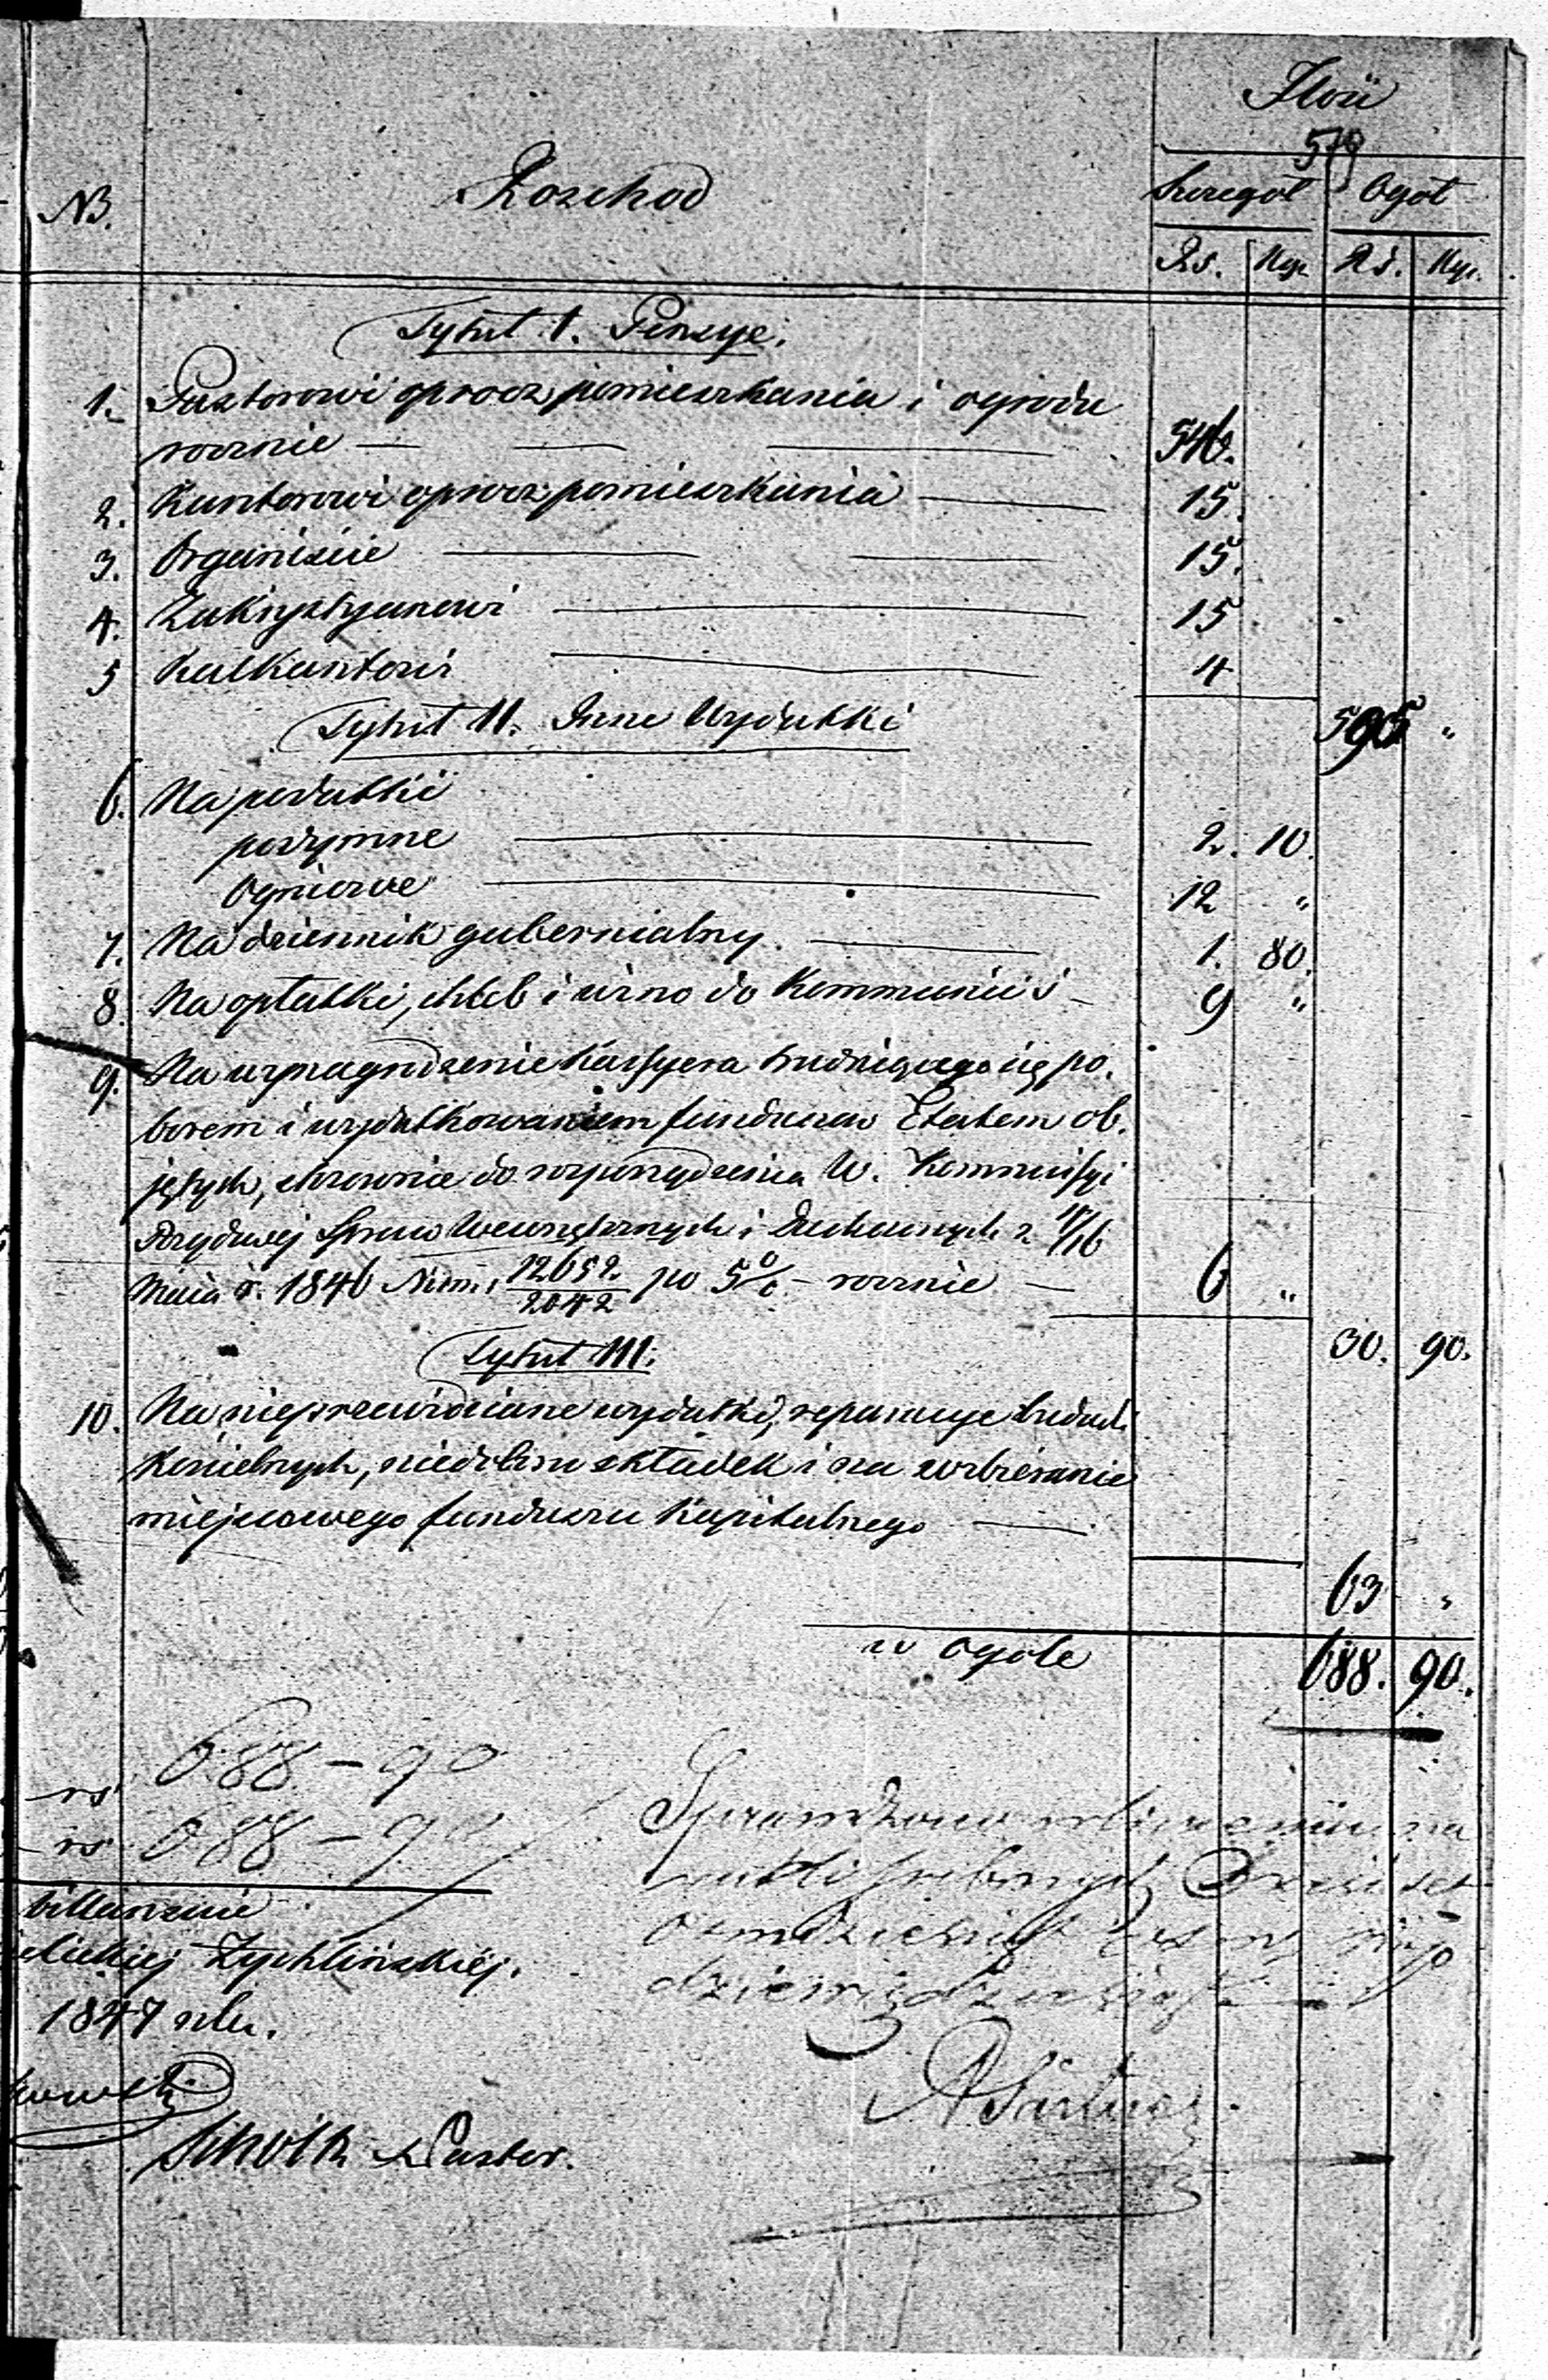 Ilość
579
NB.
Rozchod
Szczegół
Ogół
Rs. Kop. Rs. Kop.
Tytuł I. Pensye.
1. Pastorowi oprócz pomieszkania i ogrodu
rocznie — 546.
2. Kantorowi oprócz pomieszkania — 15.
3. Organiście — 15.
4. Zakrystyanowi — 15
5 Kalkantowi 4
595 "
Tytuł II. Inne Wydatki
6. Na podatki
podymne — 2. 10.
Ogniowe — 12 "
7. Na dziennik gubernialny — 1. 80.
8. Na opłatki, chleb i wino do Kommunii — 9 "
9. Na wynagrodzenie Kassyera trudniącego się po-
borem i wydatkowaniem funduszów Etatem ob-
jętych, stosownie do rozporządzenia W. Kommissyi
Rządowej Spraw Wewnętrznych i Duchownych z 4/16
Maia r. 1846 Num. 12652/2042 po 5% – rocznie — 6 "
30. 90.
Tytuł III.
10. Na nieprzewidziane wydatki, reparacye budowli
Kościelnych, niedobory składek i na uzbieranie
miejscowego funduszu Kapitalnego —
63 "
w ogóle 688. 90.
rs 688 – 90
rs 688 – 90
Sprawdzono w obliczeniu na
rubli srebrnych Sześćset
osmdziesiąt osm kop
dziewięćdziesiąt
billansuie
Żychlińskiéj.
1847 roku.
Pastor.